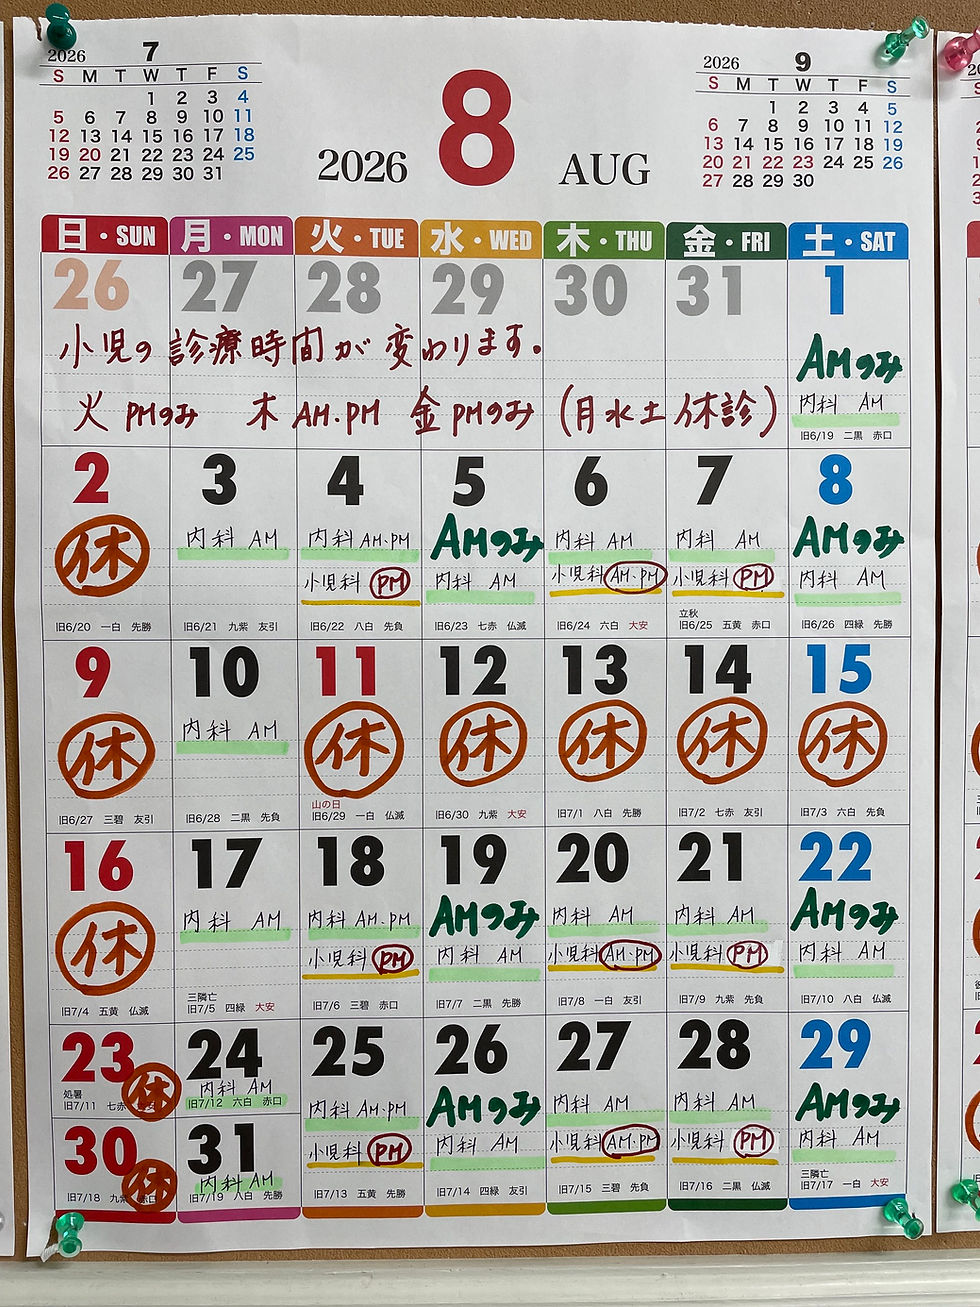 2026 7
S M T W T F S
1 2 3 4
5 6 7 8 9 10 11
12 13 14 15 16 17 18
19 20 21 22 23 24 25
26 27 28 29 30 31
2026 8 AUG
2026 9
S M T W T F S
1 2 3 4 5
6 7 8 9 10 11 12
13 14 15 16 17 18 19
20 21 22 23 24 25 26
27 28 29 30
日・SUN 月・MON 火・TUE 水・WED 木・THU 金・FRI 土・SAT
26 27 28 29 30 31 1
小児の診療時間が変わります。
火 PMのみ 木 AM.PM 金 PMのみ (月水土休診)
AMのみ
内科 AM
旧6/19 二黒 赤口
2 3 4 5 6 7 8
休 内科 AM 内科 AM・PM AMのみ 内科 AM 内科 AM AMのみ
小児科 PM 内科 AM 小児科 AM・PM 小児科 PM 内科 AM
立秋
旧6/20 一白 先勝 旧6/21 九紫 友引 旧6/22 八白 先負 旧6/23 七赤 仏滅 旧6/24 六白 大安 旧6/25 五黄 赤口 旧6/26 四緑 先勝
9 10 11 12 13 14 15
休 内科 AM 休 休 休 休 休
山の日
旧6/27 三碧 友引 旧6/28 二黒 先負 旧6/29 一白 仏滅 旧6/30 九紫 大安 旧7/1 八白 先勝 旧7/2 七赤 友引 旧7/3 六白 先負
16 17 18 19 20 21 22
休 内科 AM 内科 AM・PM AMのみ 内科 AM 内科 AM AMのみ
小児科 PM 内科 AM 小児科 AM・PM 小児科 PM 内科 AM
三隣亡
旧7/4 五黄 仏滅 旧7/5 四緑 大安 旧7/6 三碧 赤口 旧7/7 二黒 先勝 旧7/8 一白 友引 旧7/9 九紫 先負 旧7/10 八白 仏滅
23 24 25 26 27 28 29
休 内科 AM 内科 AM・PM AMのみ 内科 AM 内科 AM AMのみ
処暑
旧7/11 七赤 旧7/12 六白 赤口
小児科 PM 内科 AM 小児科 AM・PM 小児科 PM 内科 AM
30 31
休 内科 AM
三隣亡
旧7/18 九紫 赤口 旧7/19 八白 先勝 旧7/13 五黄 先勝 旧7/14 四緑 友引 旧7/15 三碧 先負 旧7/16 二黒 仏滅 旧7/17 一白 大安